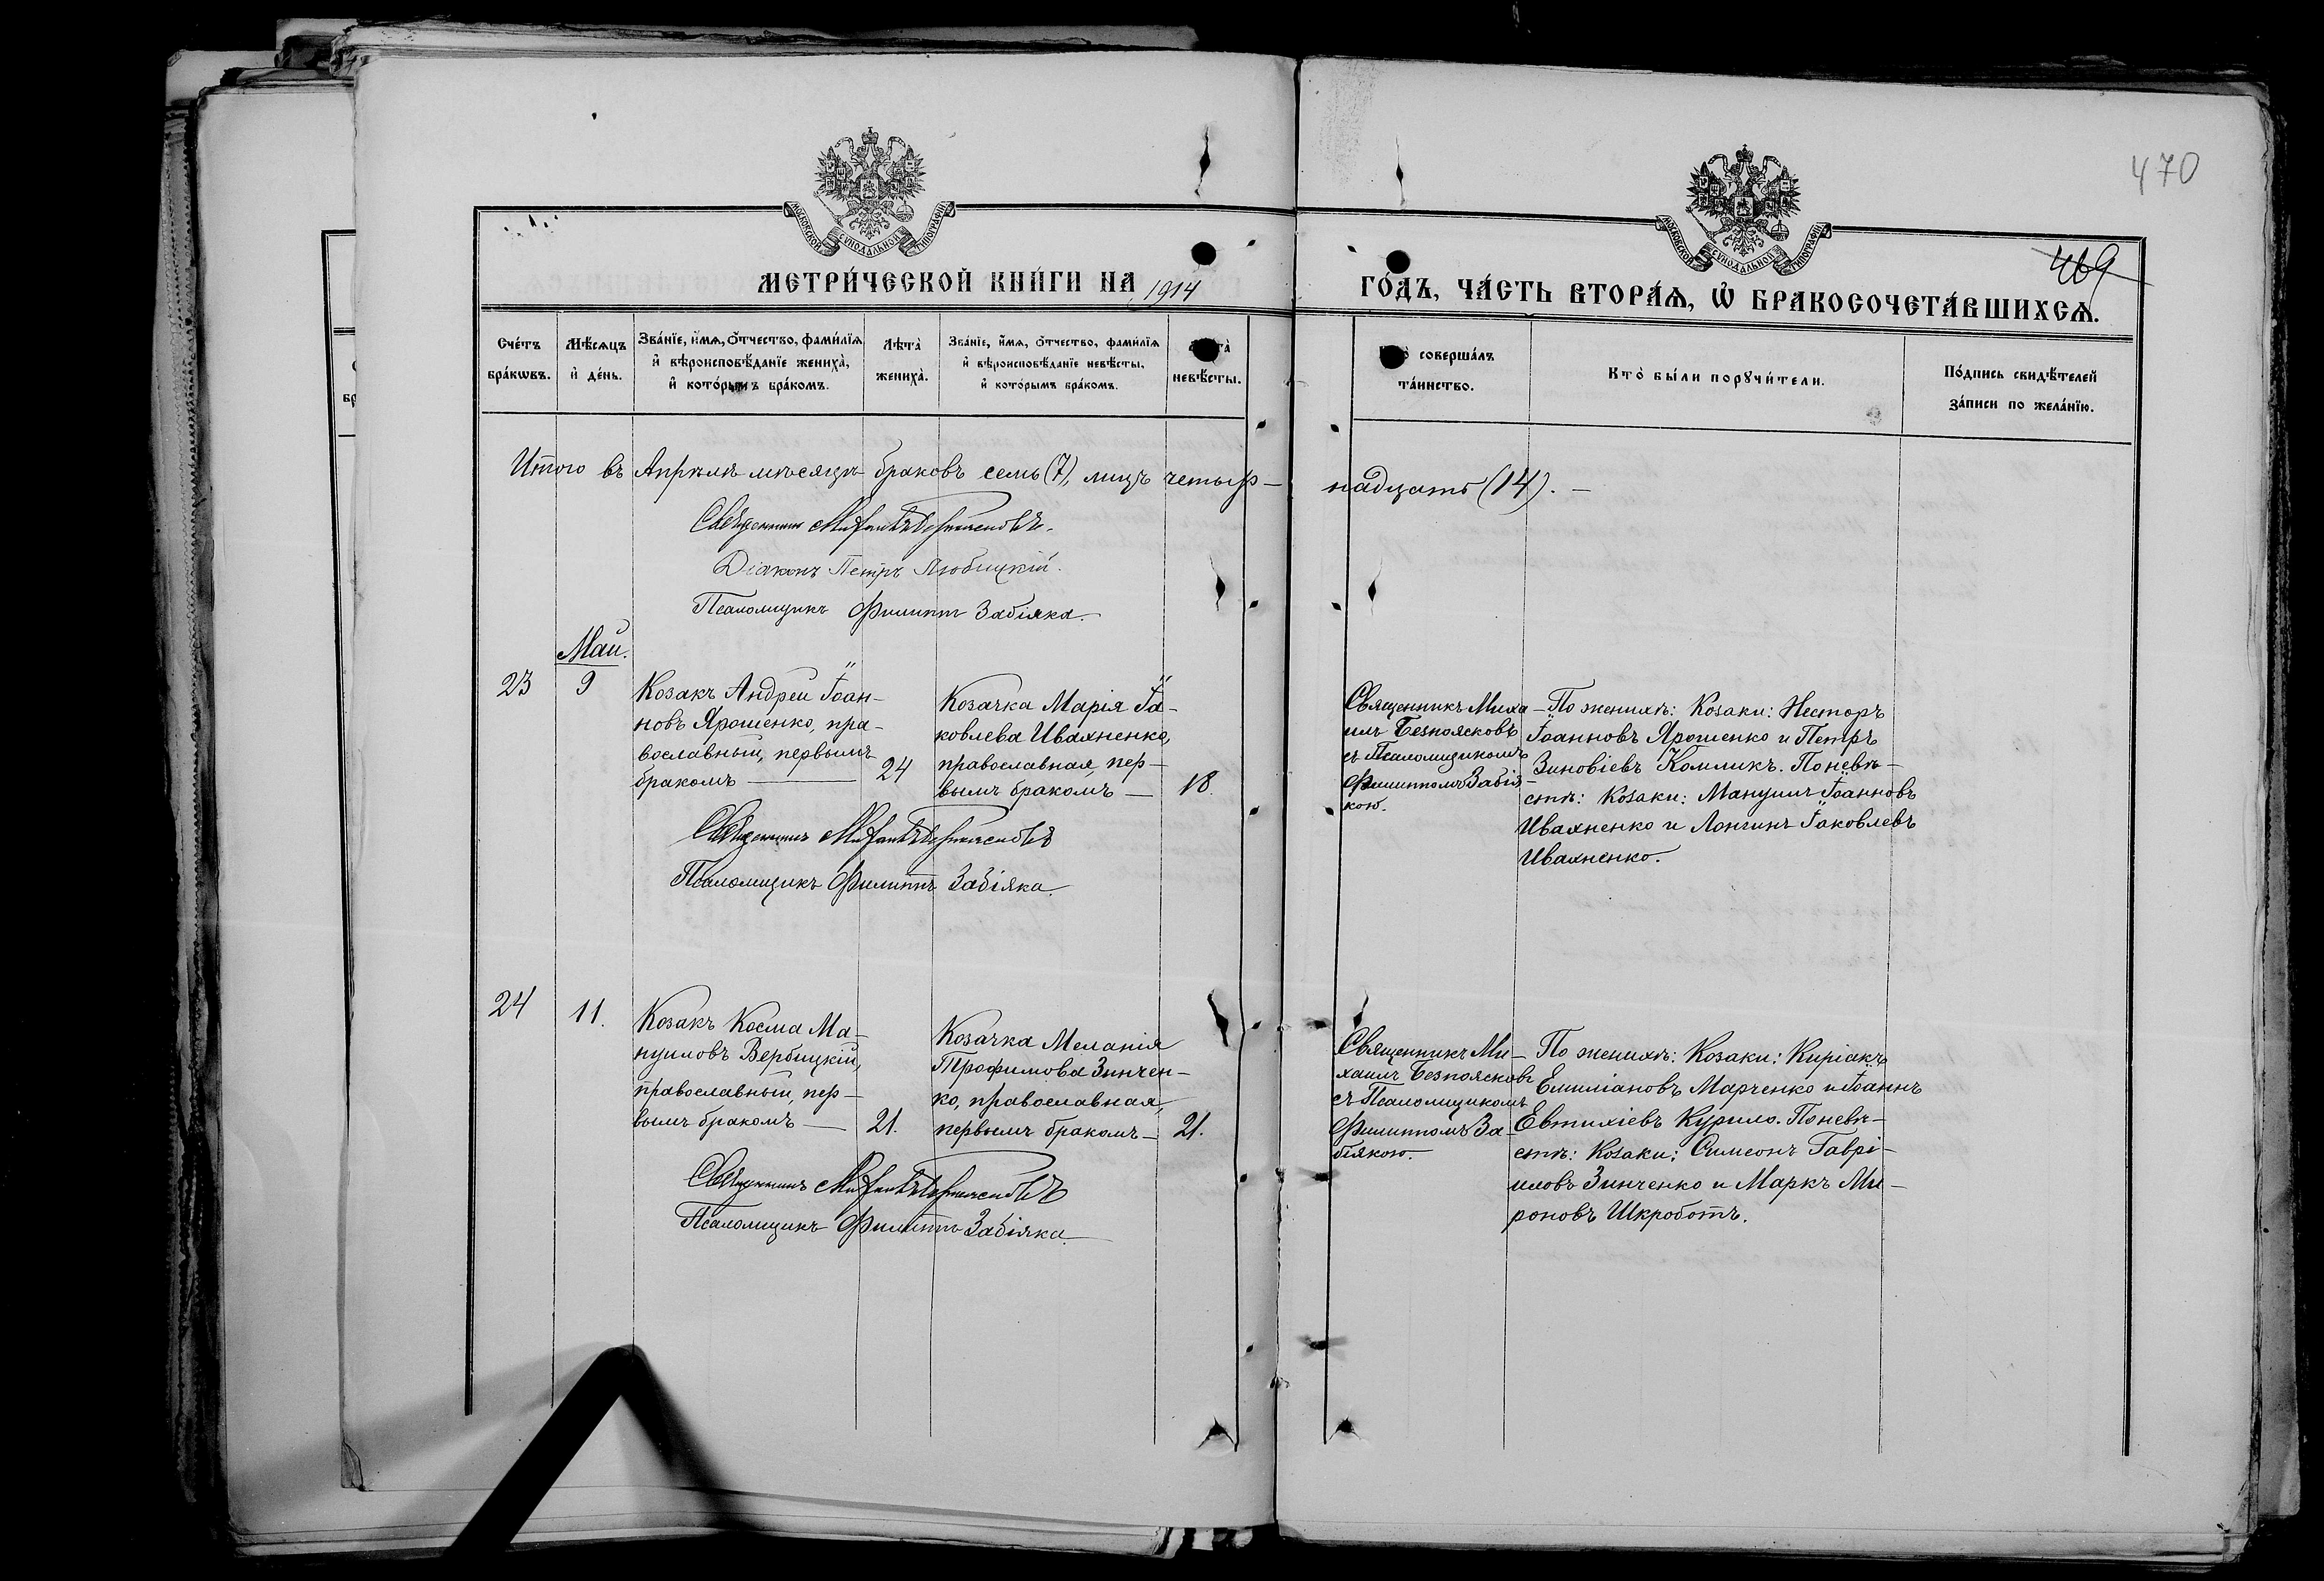 470
469
МОСКОВСКОЙ СѴНОДАЛЬНОЙ ТИПОГРАФІИ
МОСКОВСКОЙ СѴНОДАЛЬНОЙ ТИПОГРАФІИ
МЕТРИ́ЧЕСКОЙ КНИ́ГИ НА 1914
ГО́ДЪ, ЧА́СТЬ ВТОРА́Ѧ, Ѡ҆ БРАКОСОЧЕТА́ВШИХСѦ.
Сче́тъ бра́кѡвъ.
Мѣ́сѧцъ и҆ де́нь.
Зва́нїе, и҆́мѧ, ѻ҆́тчество, фами́лїѧ и҆ вѣроисповѣ́данїе жениха̀, и҆ кото́рымъ бра́комъ.
Лѣта̀ жениха̀.
Зва́нїе, и҆́мѧ, ѻ҆́тчество, фами́лїѧ и҆ вѣроисповѣ́данїе невѣ́сты, и҆ кото́рымъ бра́комъ.
невѣ́сты.
соверша́лъ та́инство.
Кто̀ бы́ли порꙋчи́тели.
По́дпись свидѣ́телей за́писи по жела́нїю.
Итого въ Апрѣлѣ мѣсяцѣ браковъ семь (7), лицъ четыр-
надцать (14). —
Священникъ Михаилъ Безпоясковъ.
Діаконъ Петръ Любицкій.
Псаломщикъ Филиппъ Забіяка.
Май.
23
9
Козакъ Андрей Іоан-
новъ Ярошенко, пра-
вославный, первымъ
бракомъ —
24
Козачка Марія Іа-
ковлева Ивахненко,
православная, пер-
вымъ бракомъ —
18.
Священникъ Миха-
илъ Безпоясковъ
съ Псаломщикомъ
Филиппомъ Забія-
кою.
По женихѣ: Козаки: Несторъ
Іоанновъ Ярошенко и Петръ
Зиновіевъ Комликъ. По невѣ-
стѣ: Козаки: Мануилъ Іоанновъ
Ивахненко и Лонгинъ Іаковлевъ
Ивахненко.
Священникъ Михаилъ Безпоясковъ
Псаломщикъ Филиппъ Забіяка.
24
11.
Козакъ Косма Ма-
нуиловъ Вербицкій,
православный, пер-
вымъ бракомъ —
21.
Козачка Меланія
Трофимова Зинчен-
ко, православная,
первымъ бракомъ —
21.
Священникъ Ми-
хаилъ Безпоясковъ
съ Псаломщикомъ
Филиппомъ За-
біякою.
По женихѣ: Козаки: Киріакъ
Емиліановъ Марченко и Іоаннъ
Евтихіевъ Курило. По невѣ-
стѣ: Козаки: Симеонъ Гаврі-
иловъ Зинченко и Маркъ Ми-
роновъ Шкроботъ.
Священникъ Михаилъ Безпоясковъ
Псаломщикъ Филиппъ Забіяка.